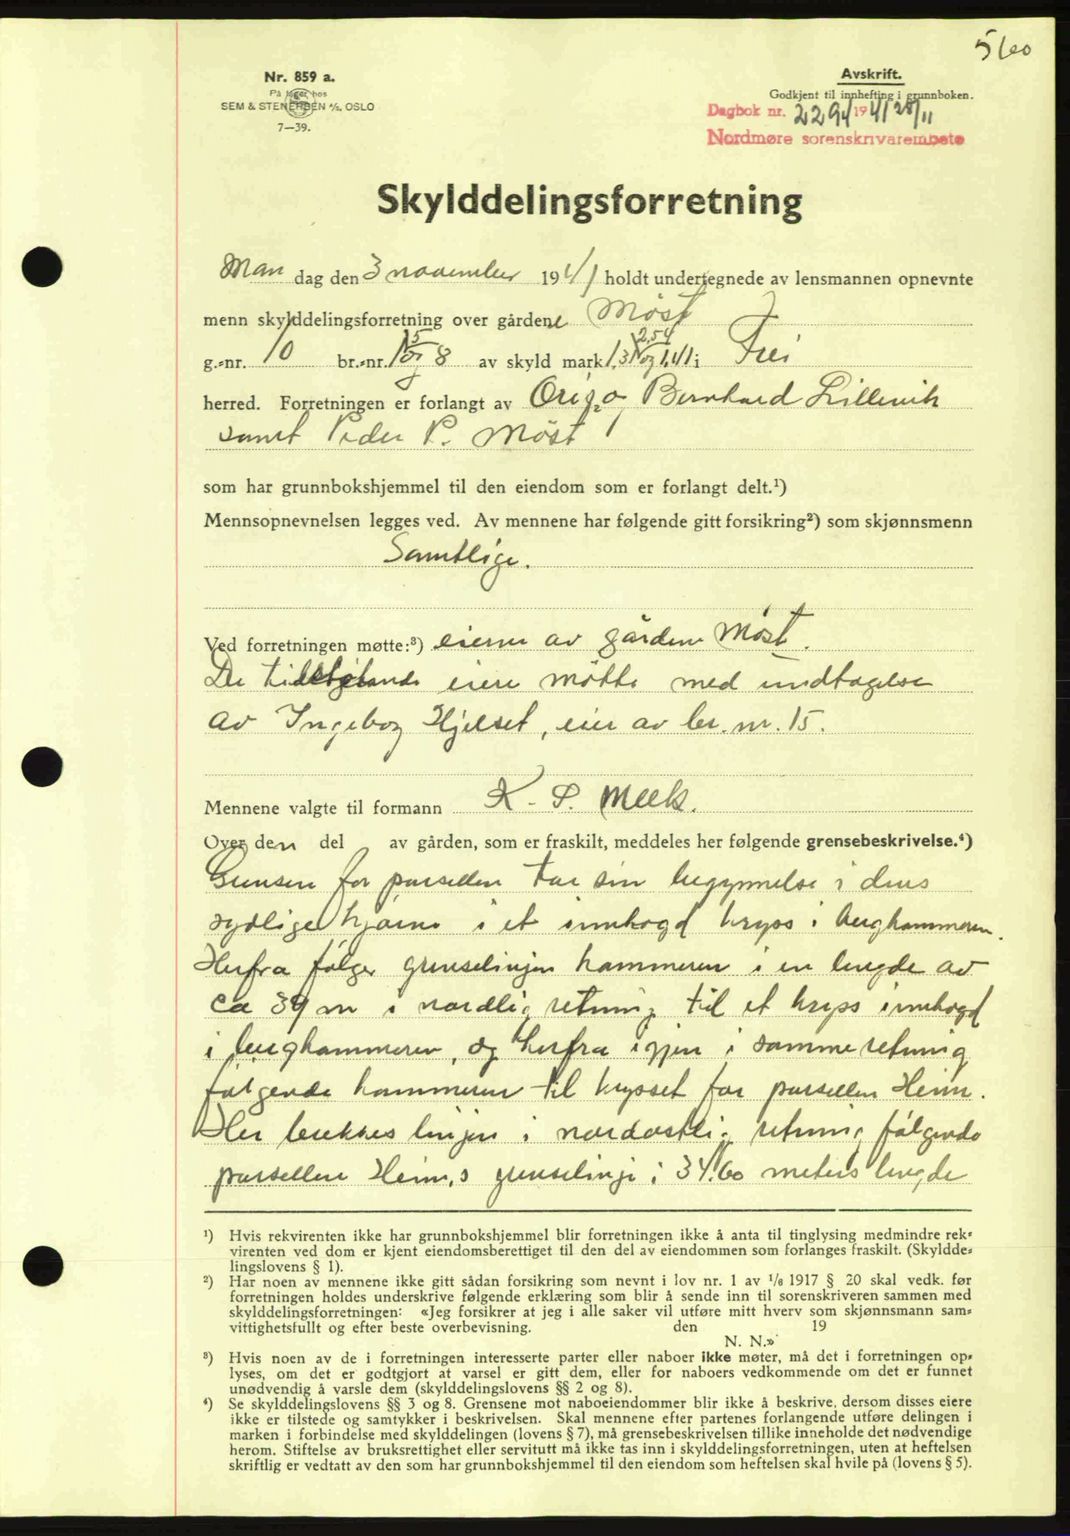 560
Nr. 859 a.
På lager hos
SEM & STENERSEN A/S, OSLO
7—39.
Avskrift.
Godkjent til innhefting i grunnboken.
Dagbok nr. 2294 1941 28/11
Nordmøre sorenskrivarembete
Skylddelingsforretning
Man dag den 3 november 1941 holdt undertegnede av lensmannen opnevnte
menn skylddelingsforretning over gårdene Möst
g.-nr. 10 br.-nr. 5 og 8 av skyld mark 2,54 og 1,41 i Frei
herred. Forretningen er forlangt av Bernhard Lillevik
samt Peder P. Möst
som har grunnbokshjemmel til den eiendom som er forlangt delt.¹)
Mennsopnevnelsen legges ved. Av mennene har følgende gitt forsikring²) som skjønnsmenn
Samtlige.
Ved forretningen møtte:³) eierne av gårdene Möst.
De tilstøtende eiere mötte med undtagelse
av Ingebog Hjelset, eier av br. nr. 15.
Mennene valgte til formann K. S. Meek.
Over den del av gården, som er fraskilt, meddeles her følgende grensebeskrivelse.⁴)
Grensen for parsellen tar sin begynnelse i dens
sydlige hjörne i et innhogd kryss i berghammeren.
Herfra fölger grenselinjen hammeren i en lengde av
ca 39 m i nordlig retning til et kryss innhogd
i berghammeren, og herfra igjen i samme retning
fölgende hammeren til krysset for parsellen Heim.
Her brekkes linjen i nordostlig retning fölgende
parsellen Heim,s grenselinje i 34.60 meters lengde
¹) Hvis rekvirenten ikke har grunnbokshjemmel blir forretningen ikke å anta til tinglysing medmindre rek-
virenten ved dom er kjent eiendomsberettiget til den del av eiendommen som forlanges fraskilt. (Skyldde-
lingslovens § 1).
²) Har noen av mennene ikke gitt sådan forsikring som nevnt i lov nr. 1 av 1/6 1917 § 20 skal vedk. før
forretningen holdes underskrive følgende erklæring som blir å sende inn til sorenskriveren sammen med
skylddelingsforretningen: «Jeg forsikrer at jeg i alle saker vil utføre mitt hverv som skjønnsmann sam-
vittighetsfullt og efter beste overbevisning. den 19
N. N.»
³) Hvis noen av de i forretningen interesserte parter eller naboer ikke møter, må det i forretningen op-
lyses, om det er godtgjort at varsel er gitt dem, eller for naboers vedkommende om det er funnet
unødvendig å varsle dem (skylddelingslovens §§ 2 og 8).
⁴) Se skylddelingslovens §§ 3 og 8. Grensene mot naboeiendommer blir ikke å beskrive, dersom disses eiere
ikke er tilstede og samtykker i beskrivelsen. Skal mennene efter partenes forlangende utføre delingen i
marken i forbindelse med skylddelingen (lovens § 7), må grensebeskrivelsen tillike inneholde det nødvendige
herom. Stiftelse av bruksrettighet eller servitutt må ikke tas inn i skylddelingsforretningen, uten at heftelsen
skriftlig er vedtatt av den som har grunnbokshjemmel til den eiendom som heftelsen skal hvile på (lovens § 5).